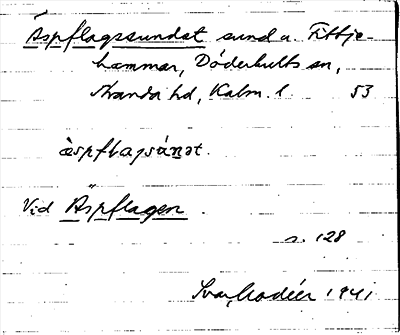 Äspflagssundet sund u. Fittje-
hammar, Döderhults sn,
Handbörds hd, Kalm. l. 53
äspflagsúnət.
Vid Äspflagen.
s. 128
Ivar Modéer 1941